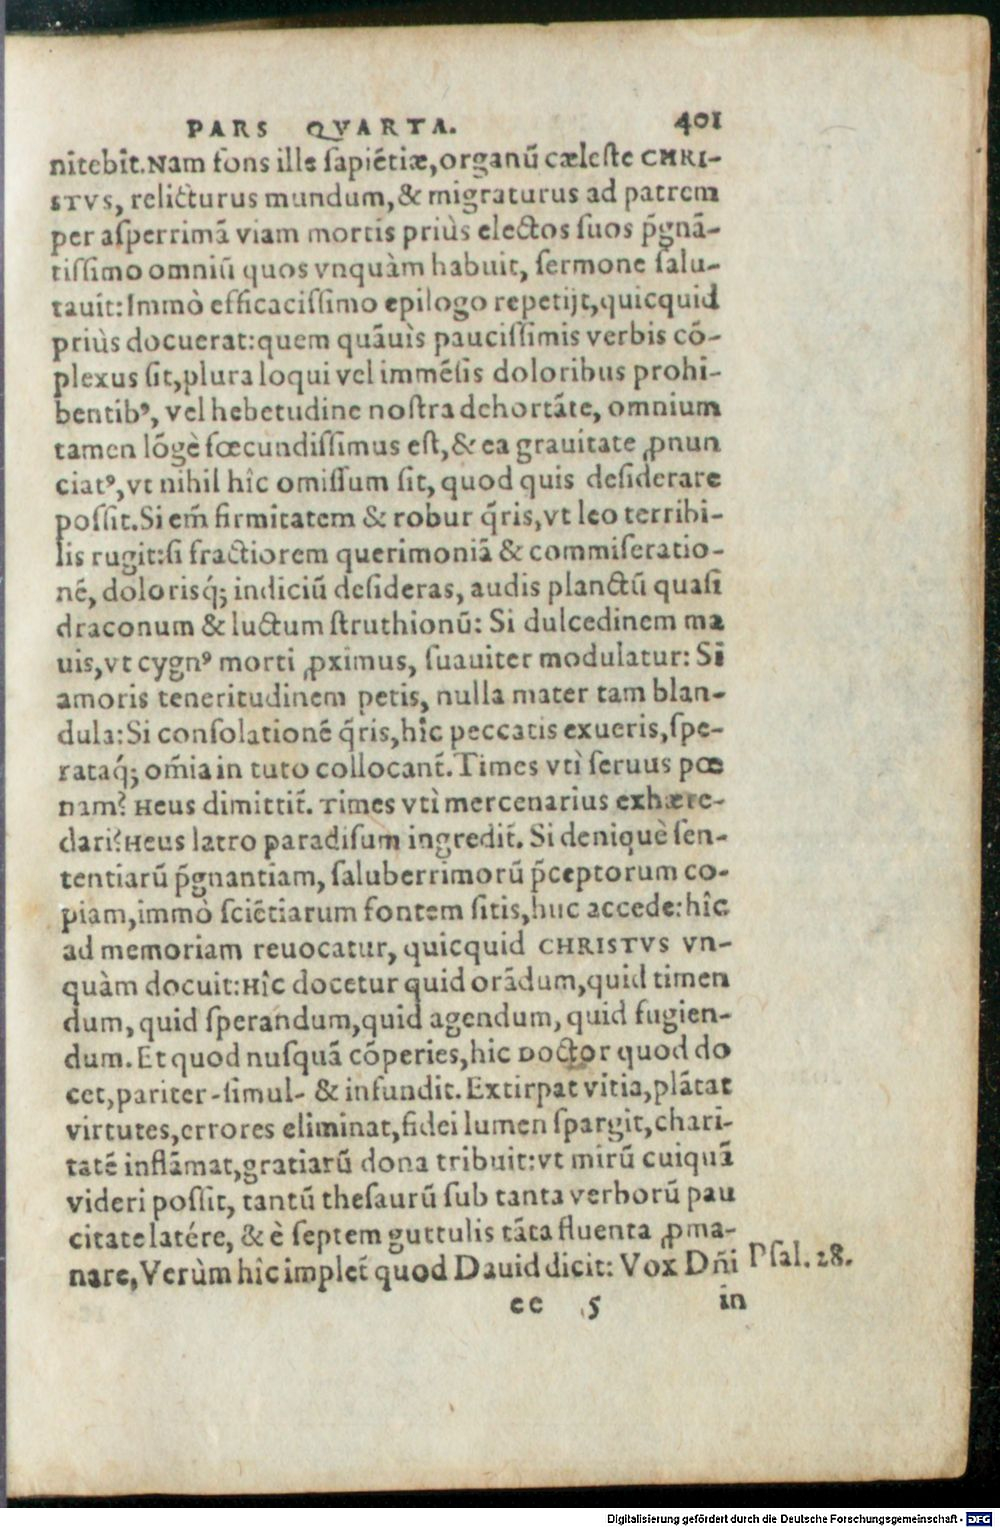 PARS QVARTA. 401
nitebit̄. Nam fons ille ſapiētiæ, organū cæleſte CHRI-
STVS, relicturus mundum, & migraturus ad patrem
per aſperrimā viam mortis priùs electos ſuos p̄gnā-
tiſſimo omniū quos vnquàm habuit, ſermone ſalu-
tauit: Immò efficaciſſimo epilogo repetijt, quicquid
priùs docuerat: quem quāuis pauciſſimis verbis cō-
plexus ſit, plura loqui vel immēſis doloribus prohi-
bentibꝰ, vel hebetudine noſtra dehortāte, omnium
tamen lōgè fœcundiſſimus eſt, & ea grauitate ꝓnun
ciatꝰ, vt nihil hîc omiſſum ſit, quod quis deſiderare
poſſit. Si em̄ firmitatem & robur q̄ris, vt leo terribi-
lis rugit: ſi fractiorem querimoniā & commiſeratio-
nē, dolorisq́; indiciū deſideras, audis planctū quaſi
draconum & luctum ſtruthionū: Si dulcedinem ma
uis, vt cygnꝰ morti ꝓximus, ſuauiter modulatur: Si
amoris teneritudinem petis, nulla mater tam blan-
dula: Si conſolationē q̄ris, hîc peccatis exueris, ſpe-
rataq́; om̄ia in tuto collocant̄. Times vtì ſeruus pœ
nam? Heus dimittit̄. Times vtì mercenarius exhære-
dari? Heus latro paradiſum ingredit̄. Si deniquè ſen-
tentiarū p̄gnantiam, ſaluberrimorū p̄ceptorum co-
piam, immò ſciētiarum fontem ſitis, huc accede: hîc
ad memoriam reuocatur, quicquid CHRISTVS vn-
quàm docuit: Hîc docetur quid orādum, quid timen
dum, quid ſperandum, quid agendum, quid fugien-
dum. Et quod nuſquā cōperies, hic Doctor quod do
cet, pariter -ſimul- & infundit. Extirpat vitia, plātat
virtutes, errores eliminat, fidei lumen ſpargit, chari-
tatē inflāmat, gratiarū dona tribuit: vt mirū cuiquā
videri poſſit, tantū theſaurū ſub tanta verborū pau
citate latére, & è ſeptem guttulis tāta fluenta ꝓma-
nare, Verùm hîc implet̄ quod Dauid dicit: Vox Dn̄i
Pſal. 28.
ee 5 in
Digitalisierung gefördert durch die Deutsche Forschungsgemeinschaft - DFG